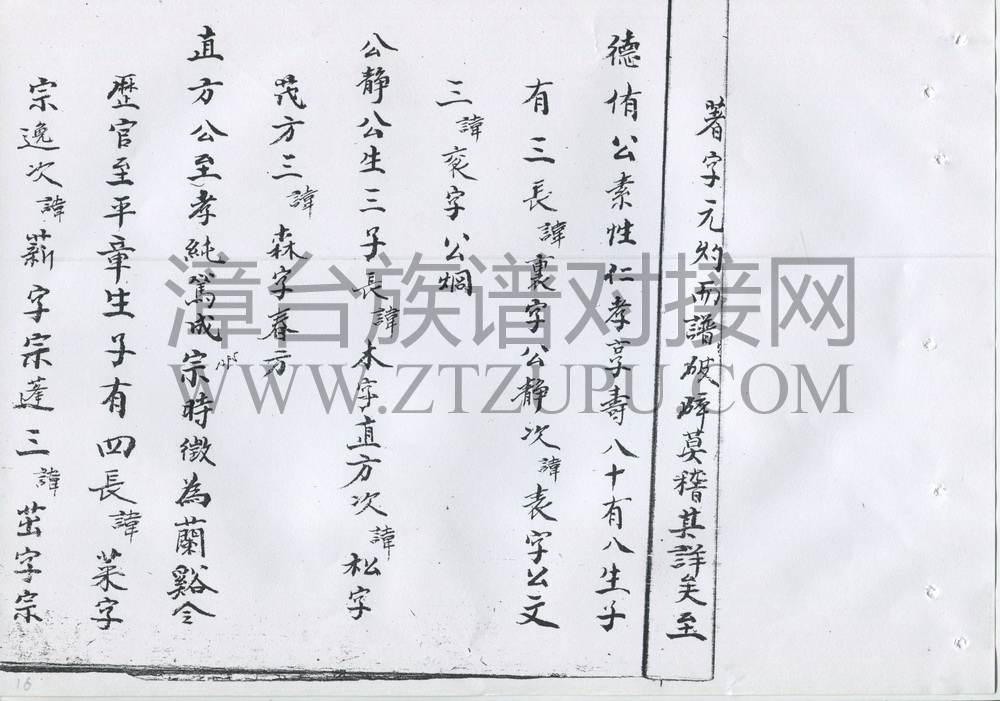 著字元灼而譜破碎莫稽其詳矣至
德侑公素性仁孝享壽八十有八生子
有三長諱裏字公靜次諱表字公文
三諱衮字公炯
公靜公生三子長諱木字直方次諱松字
茂方三諱森字春方
直方公至孝純篤成宗時徵為蘭谿令
歷官至平章生子有四長諱菜字
宗逸次諱薪字宗蓬三諱茁字宗
漳台族谱对接网
WWW.ZTZUPU.COM
16